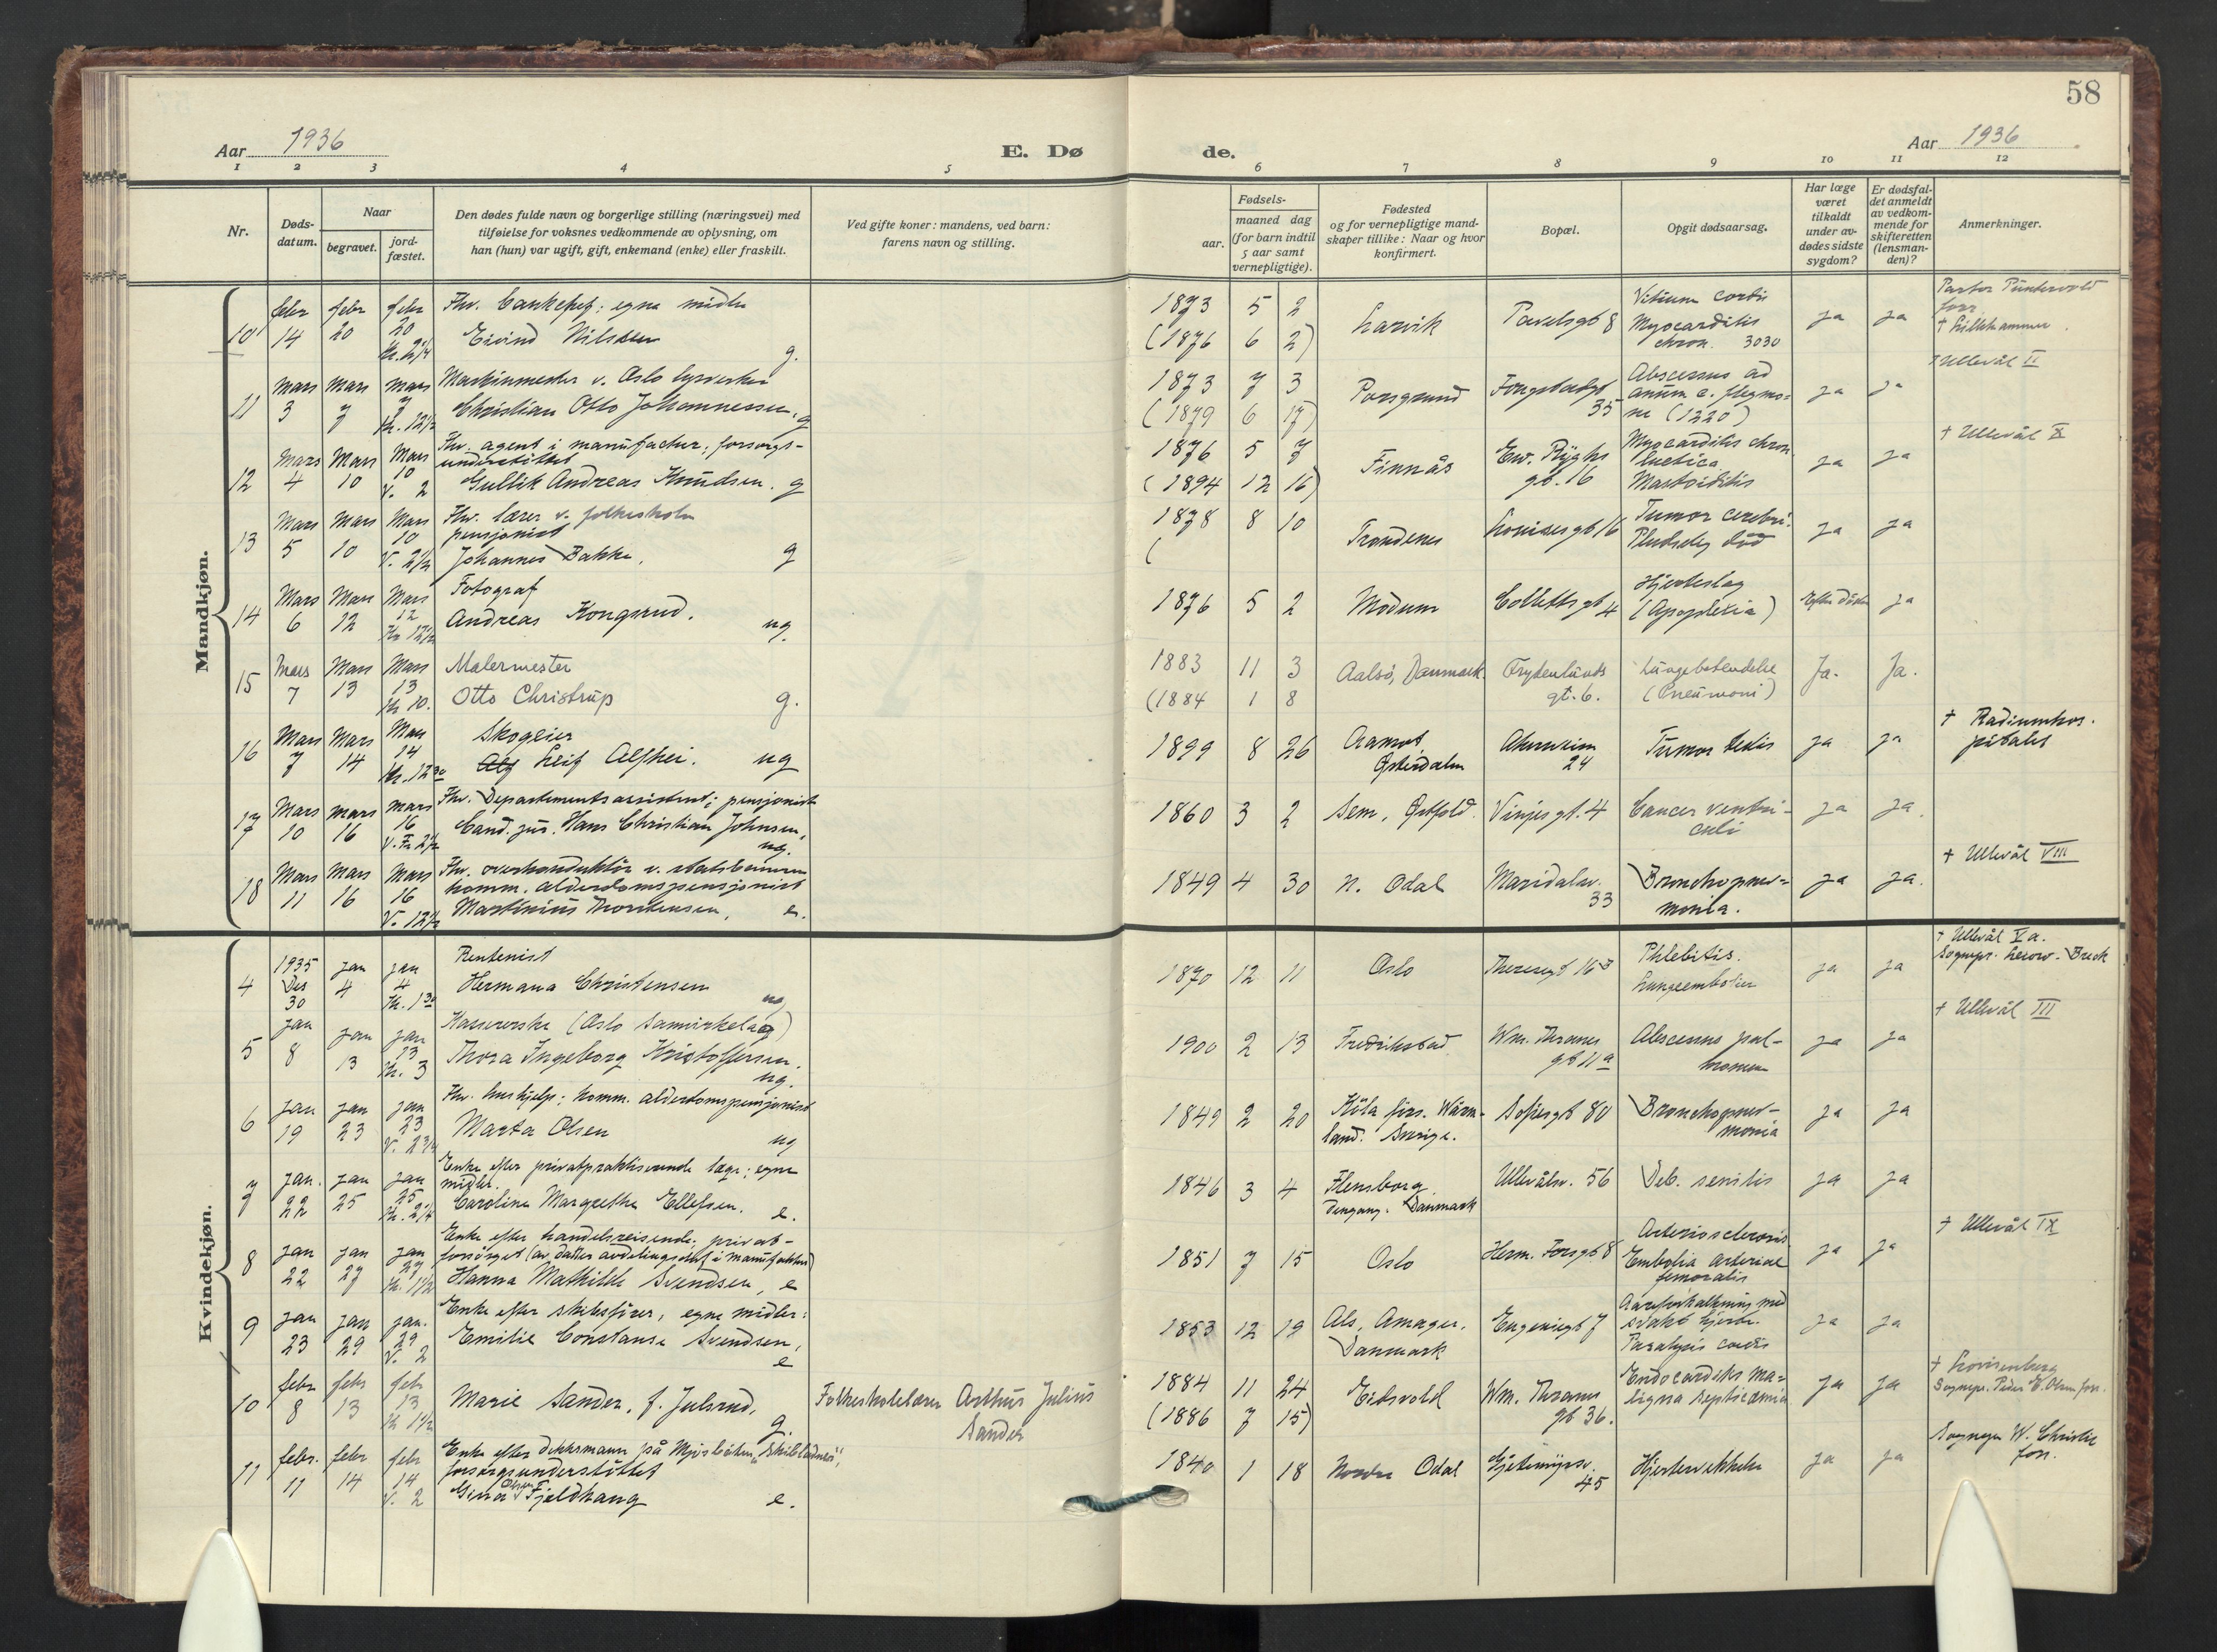 58
Aar 1936
E. Dø
de.
Aar 1936
1 2 3 4 5 6 7 8 9 10 11 12
Nr.
Døds-
datum.
Naar
begravet.
jord-
fæstet.
Den dødes fulde navn og borgerlige stilling (næringsvei) med
tilføielse for voksnes vedkommende av oplysning, om
han (hun) var ugift, gift, enkemand (enke) eller fraskilt.
Ved gifte koner: mandens, ved barn:
farens navn og stilling.
Fødsels-
aar.
maaned dag
(for barn indtil
5 aar samt
vernepligtige).
Fødested
og for vernepligtige mand-
skaper tillike: Naar og hvor
konfirmert.
Bopæl.
Opgit dødsaarsag.
Har læge
været
tilkaldt
under av-
dødes sidste
sygdom?
Er dødsfal-
det anmeldt
av vedkom-
mende for
skifteretten
(lensman-
den)?
Anmerkninger.
Mandkjøn.
10 febr 14 febr 20 febr 20
egne midler
Eivind Nilssen g.
1873 5 2
(1876 6 2)
Larvik
8
Vitium cordis
Myocarditis
chron. 3030
ja ja
Pastor
forr.
† Lillehammer
11 Mars 3 Mars 7 Mars 7 Kr. 12½
Maskinmester v. Oslo lysverker
Christian Otto Johannessen, g
1873 7 3
(1879 6 17)
Porsgrund
35
Abscessus ad
anum c. flegmo-
ne (1220)
ja ja
† Ullevål II
12 Mars 4 Mars 10 Mars 10 V. 2
Fhv. agent i manufactur; forsorgs-
understøttet
Gullik Andreas Knudsen. g
1876 5 7
(1894 12 16)
Finnås
Ew. Ryghs
gt. 16
Myocarditis chron.
luetica
Mastoiditis
ja ja
† Ullevål X
13 Mars 5 Mars 10 Mars 10 V. 2½
Fhv. lærer v. folkeskolen
pensjonist
Johannes Bakke. g
1878 8 10
(
Trondenes
Louisesgt 16
Tumor cerebri.
Pludselig død
ja ja
14 Mars 6 Mars 12 Mars 12 Kr 12½
Fotograf
Andreas Kongsrud. ug.
1876 5 2
Modum
Colletts gt 4
Hjerteslag
(Apoplexia)
Efter døden ja
15 Mars 7 Mars 13 Mars 13 Kr 10.
Malermester
Otto Christrup g.
1883 11 3
(1884 1 8
Aalsö, Danmark.
Frydenlunds
gt. 6.
Lungebetendelse
(Pneumoni)
Ja. Ja.
16 Mars 7 Mars 14 Mars 14 Kr. 12 30
Skogeier
Leif Alfhei. ug
1899 8 26
Aamot,
Østerdalen
Akersveien
24
Tumor testis
ja ja
† Radiumhos-
pitalet
17 Mars 10 Mars 16 Mars 16
Fhv. Departementsassistent; pensjonist
Cand. jur. Hans Christian Johnsen,
ug.
1860 3 2
Sem, Østfold.
Vinjesgt. 4
Cancer ventri-
culi
ja ja.
18 Mars 11 Mars 16 Mars 16 V. 12½
Fhv. overkonduktør v. statsbanen
komm. alderdomspensjonist
Martinius Thorstensen, e.
1849 4 30
N. Odal
Maridalsv.
33
Bronchopneu-
monia.
ja ja.
† Ullevål VIII
Kvindekjøn.
4 1935 Des 30 jan 4 jan 4 Kr. 1 30
Rentenist
Hermana Christensen ug,
1870 12 11
Oslo
Theresegt 16
Phlebitis.
Lungeembolier
ja ja
† Ullevål V a.
5 jan 8 jan 13 jan 13 Kr. 3
Kassererske (Oslo Samvirkelag)
Thora Ingeborg Kristoffersen.
ug.
1900 2 13
Fredrikstad
Wm. Thranes
gt 11a
Abscessus pul-
monum
ja ja
† Ullevål III
6 jan 19 jan 23 jan 23
Fhv. hushjelp; komm. alderdomspensjonist
Marta Olsen ug
1849 2 20
Köla förs. Wärm-
land. Sverige.
Sofiesgt 80
Bronchopneu-
monia
ja ja
7 jan. 22 jan 25 jan 25
Enke efter privatpraktiserende læge; egne
midler.
Caroline Margrethe Ellefsen. e.
1846 3 4
Flensborg
dengang. Danmark
Ullevålsv. 56
Deb. senilis
ja ja
8 jan 22 jan 27 jan 27 Kr. 1½
Enke efter handelsreisende; privat-
forsørget (av datter avdelingschef i manufaktur)
Hanna Mathilde Svendsen, e
1851 7 15
Oslo
Herm. Fossgt 8
Arteriosclerosis
Embolia arteriae
femoralis
ja ja
† Ullevål IX
9 jan 23 jan 29 jan. 29 V. 2
Enke efter skibsfører, egne midler:
Emilie Constanse Svendsen,
e
1853 12 19
Als, Amager.
Danmark
Eugeniegt 7
Aareforkalkning med
svakt hjerte.
Paralysis cordis
ja ja
10 febr 8 febr 13 febr 13 Kr 1½
Marie Sander, f. Julsrud, g.
Folkeskolelærer Arthur Julius
Sander
1884 11 24
(1886 7 15)
Eidsvold
Wm. Thranes
gt 36.
Endocarditis ma-
ligna septicæmia
ja ja
† Lovisenberg
Sognepr. Peder E. Olsen forr.
11 febr. 11 febr 14 febr 14 V. 2
Enke efter dekksmann på Mjøsbåten "Skibladner",
forsorgsunderstøttet
Gina Olsen Fjeldhaug e.
1840 1 18
Nordre Odal
Gjetemyrsv.
45
Hjertesvekkelse
ja ja
Sognepr W. Christie
forr.